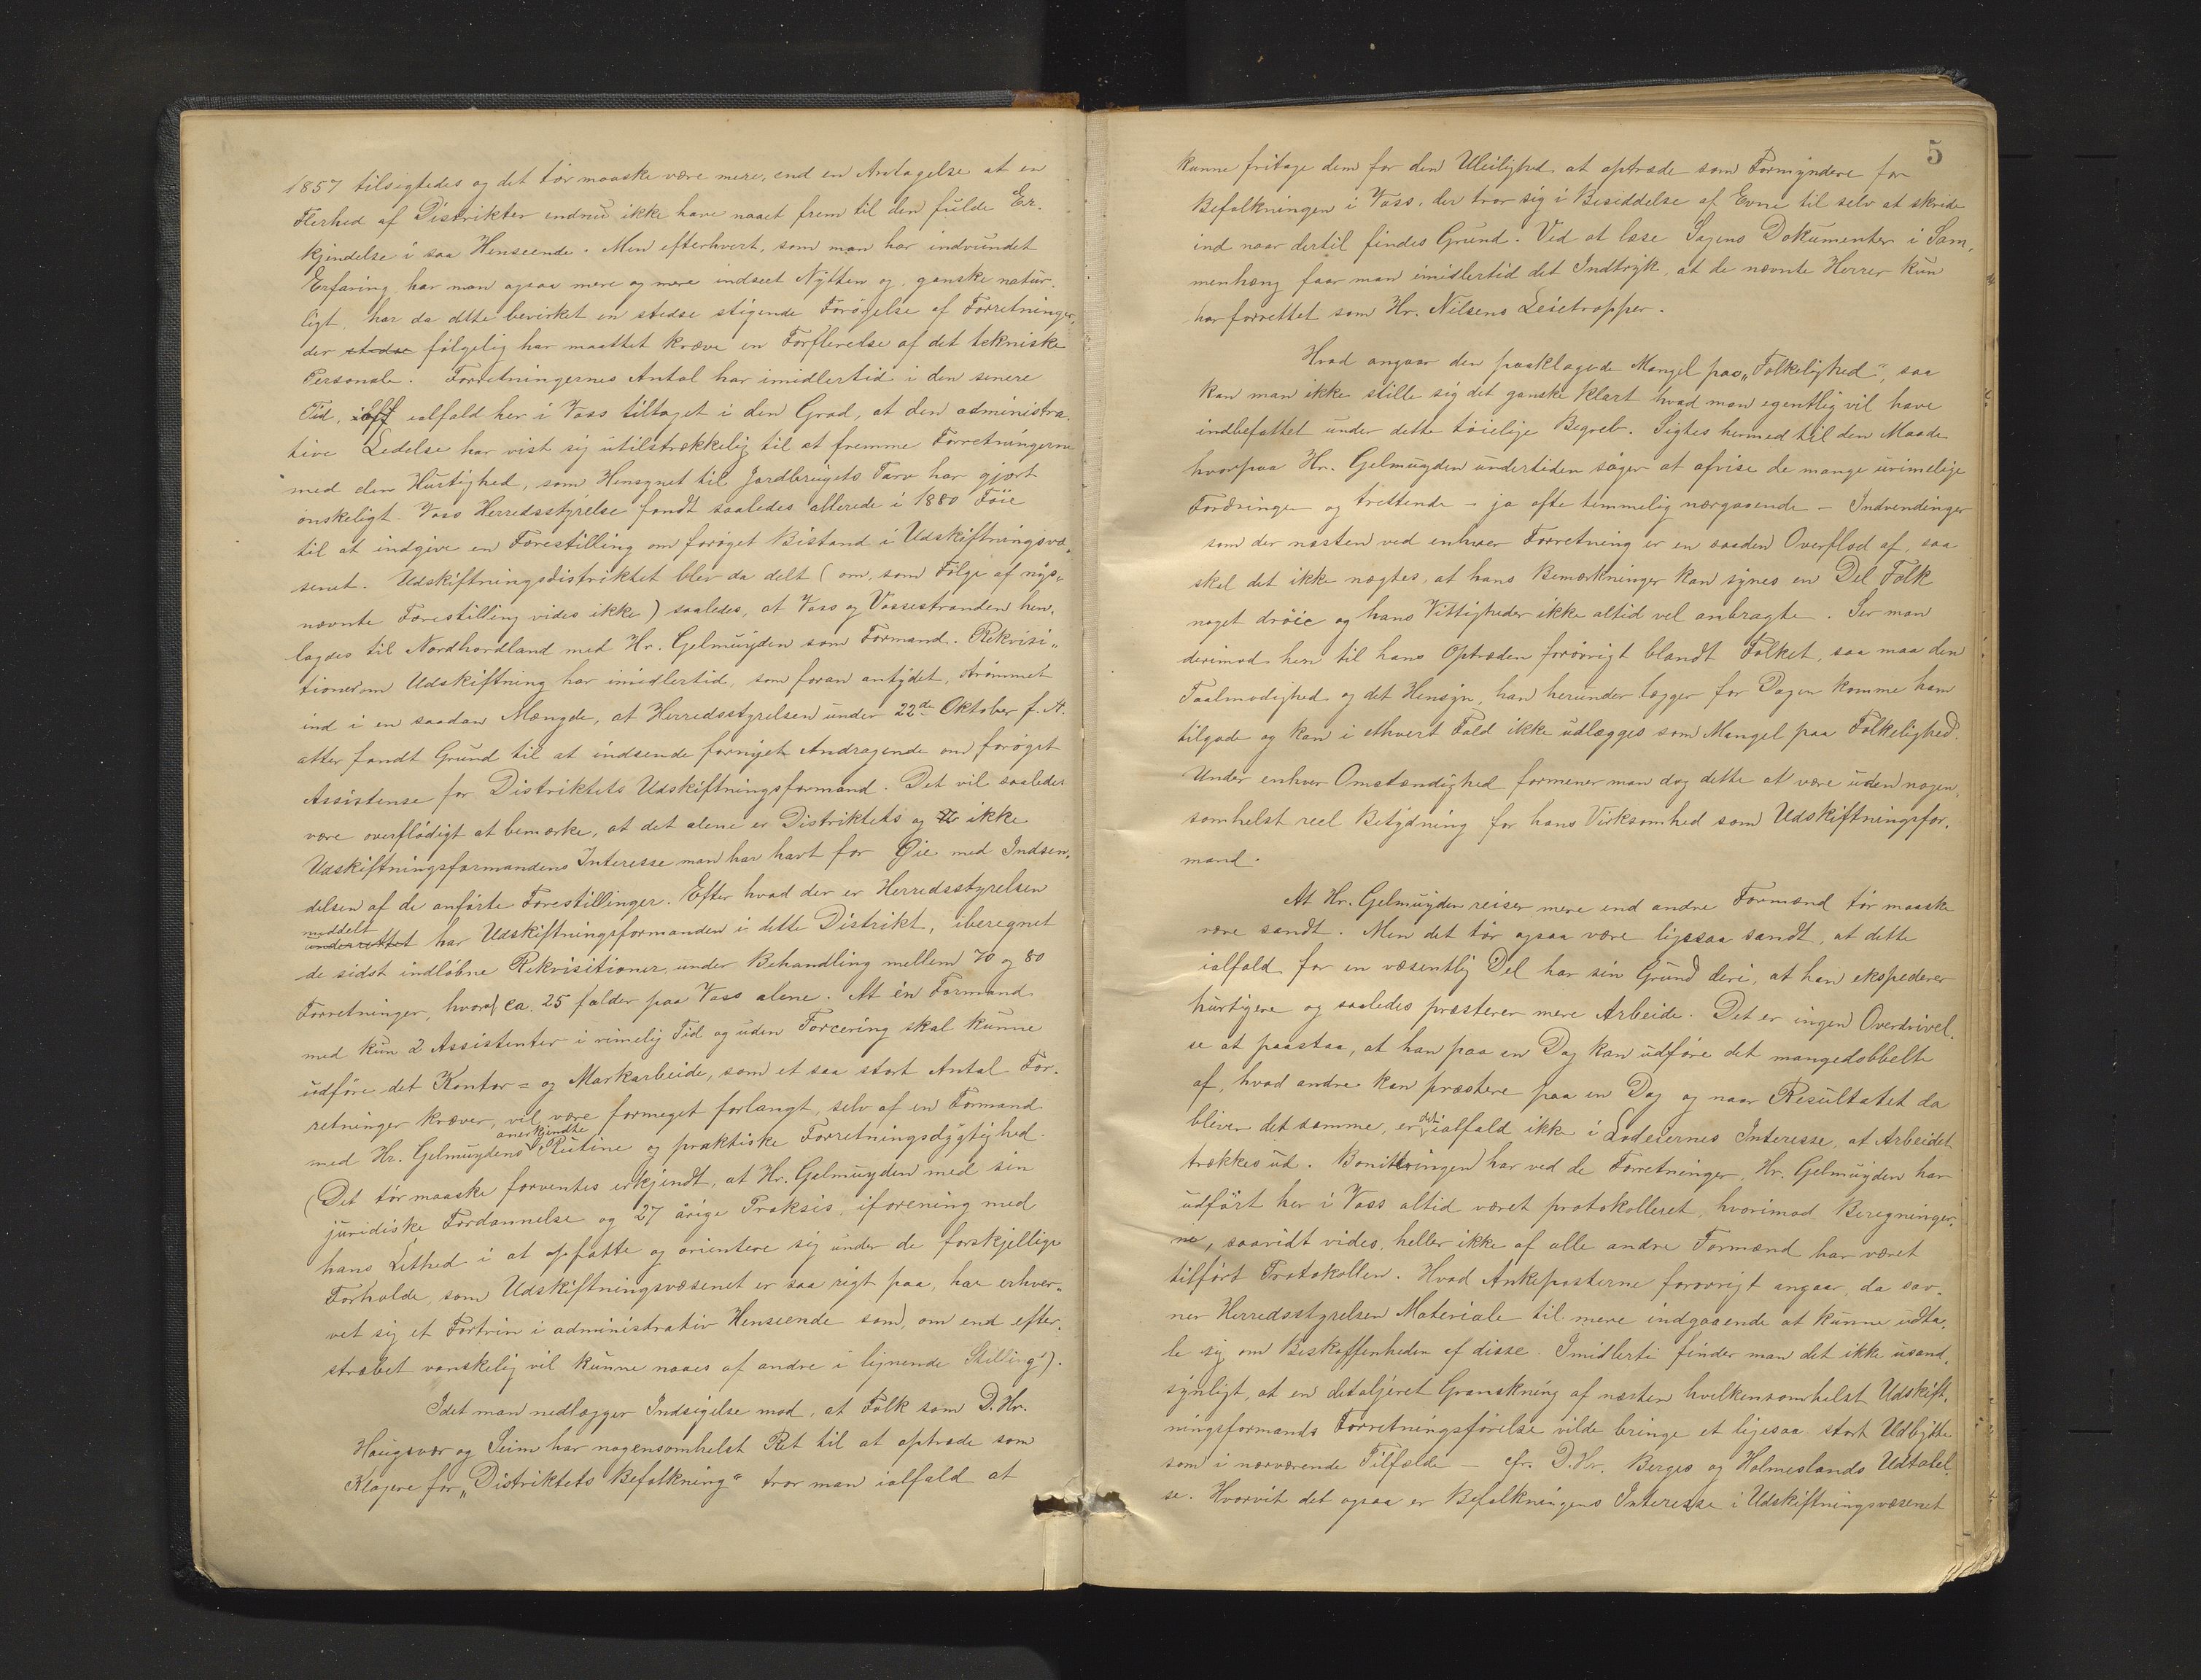 1857 tilsigtedes og det tør maaske være mere, end en Antagelse at en
Flerhed af Distrikter endnu ikke have naaet frem til den fulde Er-
kjendelse i saa Henseende. Men efterhvert, som man har indvundet
Erfaring, har man ogsaa mere og mere indseet Nytten og, ganske natur-
ligt, har da dette bevirket en stedse stigende Forøgelse af Forretninger,
der stedse følgelig har maattet kræve en Forflerelse af det tekniske
Personale. Forretningernes Antal har imidlertid i den senere
Tid, ialfald her i Voss tiltaget i den Grad, at den administra-
tive Ledelse har vist sig utilstrækkelig til at fremme Forretningerne
med den Hurtighed, som Hensynet til Jordbrugets Tarv har gjort
ønskeligt. Voss Herredsstyrelse fandt saaledes allerede i 1880 Føie
til at indgive en Forestilling om forøget Bistand i Udskiftningsvæ-
senet. Udskiftningsdistriktet blev da delt (om, som Følge af nys-
nævnte Forestilling vides ikke) saaledes, at Voss og Vossestranden hen-
lagdes til Nordhordland med Hr. Gelmuyden som Formand. Rekvisi-
tioner om Udskiftning har imidlertid, som foran antydet, strømmet
ind i en saadan Mængde, at Herredsstyrelsen under 22de Oktober f. A.
atter fandt Grund til at indsende fornyet Andragende om forøget
Assistense for Distriktets Udskiftningsformand. Det vil saaledes
være overflødigt at bemærke, at det alene er Distriktets og ikke
Udskiftningsformandens Interesse man har havt for Øie med Indsen-
delsen af de anførte Forestillinger. Efter hvad der er Herredsstyrelsen
meddelt
underrettet har Udskiftningsformanden i dette Distrikt, iberegnet
de sidst indløbne Rekvisitioner, under Behandling mellem 70 og 80
Forretninger, hvoraf ca. 25 falder paa Voss alene. At én Formand
med kun 2 Assistenter i rimelig Tid og uden Forcering skal kunne
udføre det Kontor- og Markarbeide, som et saa stort Antal For-
retninger kræver, vil være formeget forlangt, selv af en Formand
anerkjendte
med Hr. Gelmuydens Rutine og praktiske Forretningsdygtighed.
(Det tør maaske forventes erkjendt, at Hr. Gelmuyden med sin
juridiske Fordannelse og 27 årige Praksis, iforening med
hans Lethed i at opfatte og orientere sig under de forskjellige
Forholde, som Udskiftningsvæsenet er saa rigt paa, har erhver-
vet sig et Fortrin i administrativ Henseende som, om end efter-
stræbet vanskelig vil kunne naaes af andre i lignende Stilling).
Idet man nedlægger Indsigelse mod, at Folk som D. Hr.
Haugsvær og Seim har nogensomhelst Ret til at optræde som
Klagere for „Distriktets Befolkning“ tror man ialfald at
5
kunne fritage dem for den Uleilighed at optræde som Formyndere for
Befolkningen i Voss, der tror sig i Besiddelse af Evne til selv at skride
ind naar dertil findes Grund. Ved at læse Sagens Dokumenter i Sam-
menhæng faar man imidlertid det Indtryk, at de nævnte Herrer kun
har forrettet som Hr. Nilsens Leietropper.
Hvad angaar den paaklagede Mangel paa „Folkelighed“, saa
kan man ikke stille sig det ganske klart hvad man egentlig vil have
indbefattet under dette tøielige Begreb. Sigtes hermed til den Maade
hvorpaa Hr. Gelmuyden undertiden søger at afvise de mange urimelige
Fordringer og trættende – ja ofte temmelig nærgaaende – Indvendinger
som der næsten ved enhver Forretning er en saadan Overflod af, saa
skal det ikke nægtes, at hans Bemærkninger kan synes en Del Folk
noget drøie og hans Vittigheder ikke altid vel anbragte. Ser man
derimod hen til hans Optræden forøvrigt blandt Folket, saa maa den
Taalmodighed og det Hensyn, han herunder lægger for Dagen komme ham
tilgode og kan i ethvert Fald ikke udlægges som Mangel paa Folkelighed.
Under enhver Omstændighed formener man dog dette at være uden nogen-
somhelst reel Betydning for hans Virksomhed som Udskiftningsfor-
mand.
At Hr. Gelmuyden reiser mere end andre Formænd tør maaske
være sandt. Men det tør ogsaa være ligesaa sandt, at dette
ialfald for en væsentlig Del har sin Grund deri, at han ekspederer
hurtigere og saaledes præsterer mere Arbeide. Det er ingen Overdrivel-
se at paastaa, at han paa en Dag kan udføre det mangedobbelte
af, hvad andre kan præstere paa en Dag og naar Resultatet da
det
bliver det samme, er ialfald ikke i Lodeiernes Interesse, at Arbeidet
trækkes ud. Boniteringen har ved de Forretninger, Hr. Gelmuyden har
udført her i Voss altid været protokolleret, hvorimod Beregninger-
ne, saavidt vides, heller ikke af alle andre Formænd har været
tilført Protokollen. Hvad Ankeposterne forøvrigt angaar, da sav-
ner Herredsstyrelsen Materiale til mere indgaaende at kunne udta-
le sig om Beskaffenheden af disse. Imidlerti finder man det ikke usand-
synligt, at en detaljeret Granskning af næsten hvilkensomhelst Udskift-
ningsformands Forretningsførelse vilde bringe et ligesaa stort Udbytte
som i nærværende Tilfælde – cfr. D. Hr. Berges og Holmeslands Udtalel-
se. Hvorvit det ogsaa er Befolkningens Interesse i Udskiftningsvæsenet